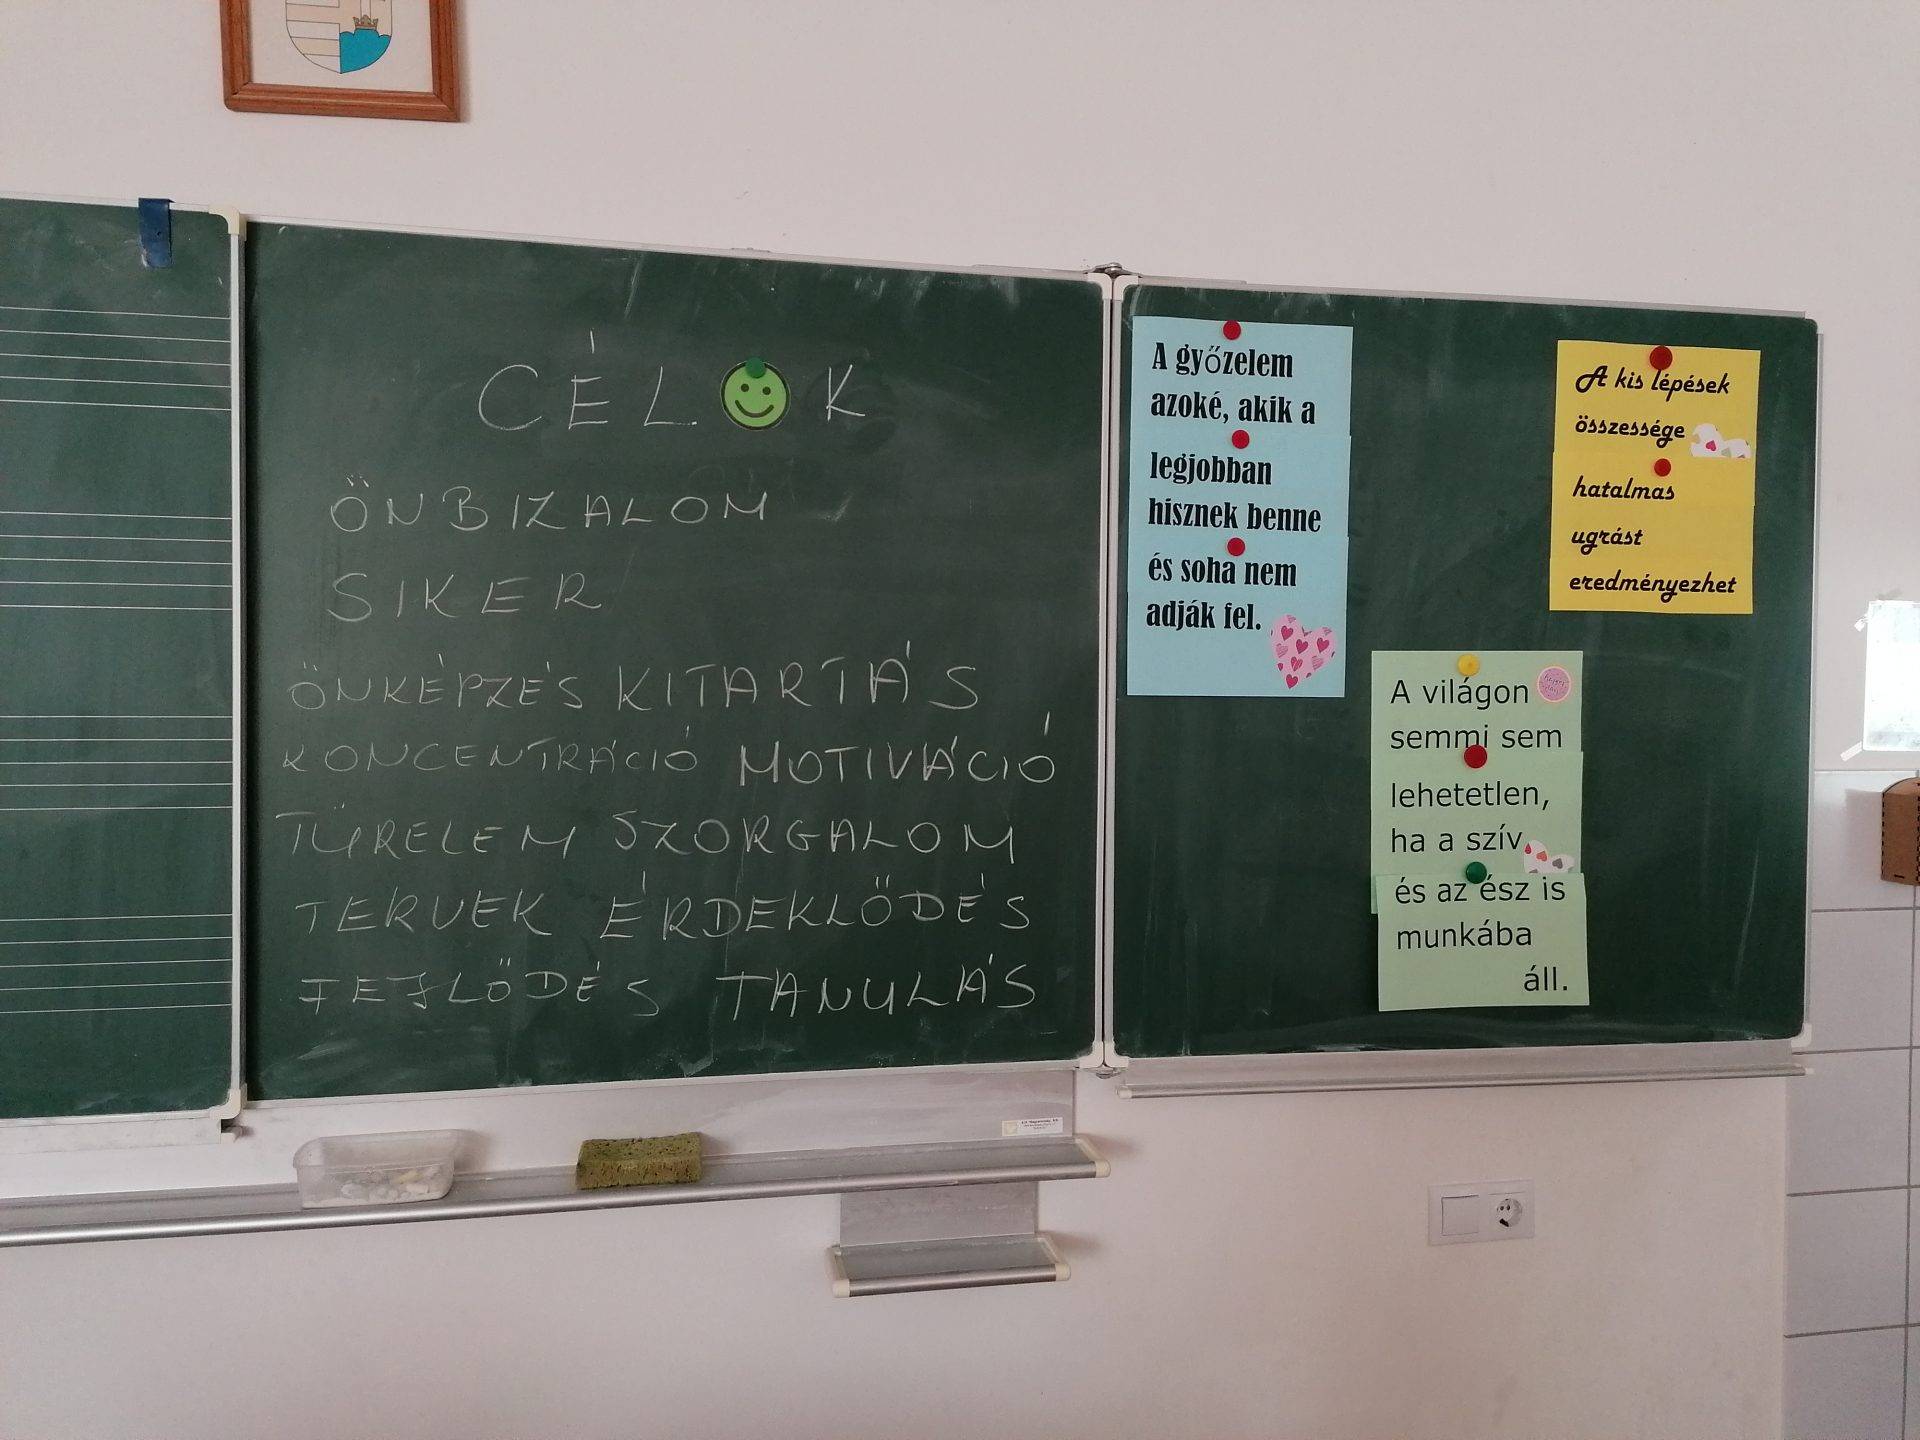 CÉL K
ÖNBIZALOM
SIKER
ÖNKÉPZÉS KITARTÁS
KONCENTRÁCIÓ MOTIVÁCIÓ
TÜRELEM SZORGALOM
TERVEK ÉRDEKLŐDÉS
FEJLŐDÉS TANULÁS
A győzelem
azoké, akik a
legjobban
hisznek benne
és soha nem
adják fel.
A kis lépések
összessége
hatalmas
ugrást
eredményezhet
A világon
semmi sem
lehetetlen,
ha a szív
és az ész is
munkába
áll.